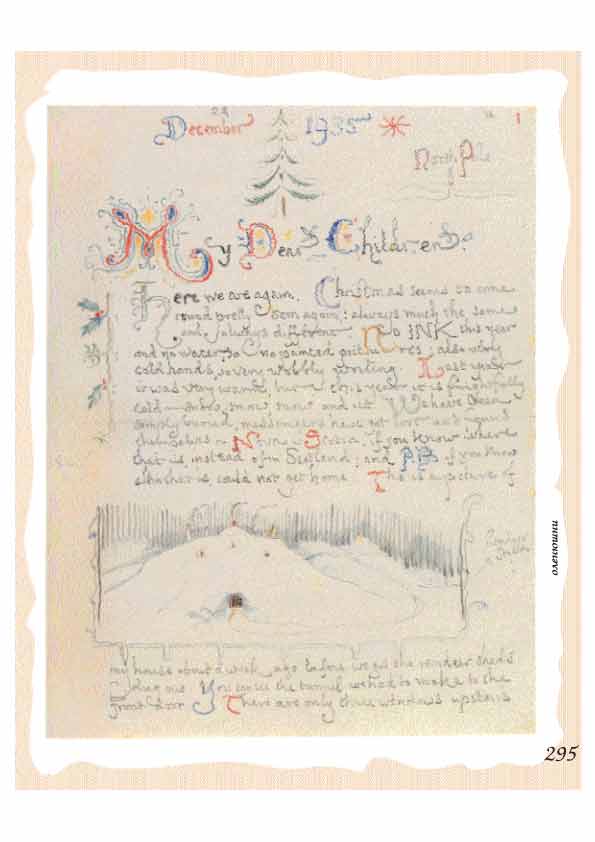 December 1935
North Pole
My Dear Children:
Here we are again. Christmas seems to come
round pretty soon again: always much the same
and always different. No INK this year
and no water, so no painted pictures; also very
cold hands, so very wobbly writing. Last year
it was very warm, but this year it is frightfully
cold — snow, snow, snow and ice. We have been
simply buried, messengers have got lost and found
themselves in Nova Scotia, if you know where
that is, instead of in Scotland; and P.B. if you know
who that is, could not get home. This is a picture of
my house about a week ago before we got the reindeer sheds
dug out. You can see the tunnel we had to make to the
front door. There are only three windows upstairs
295